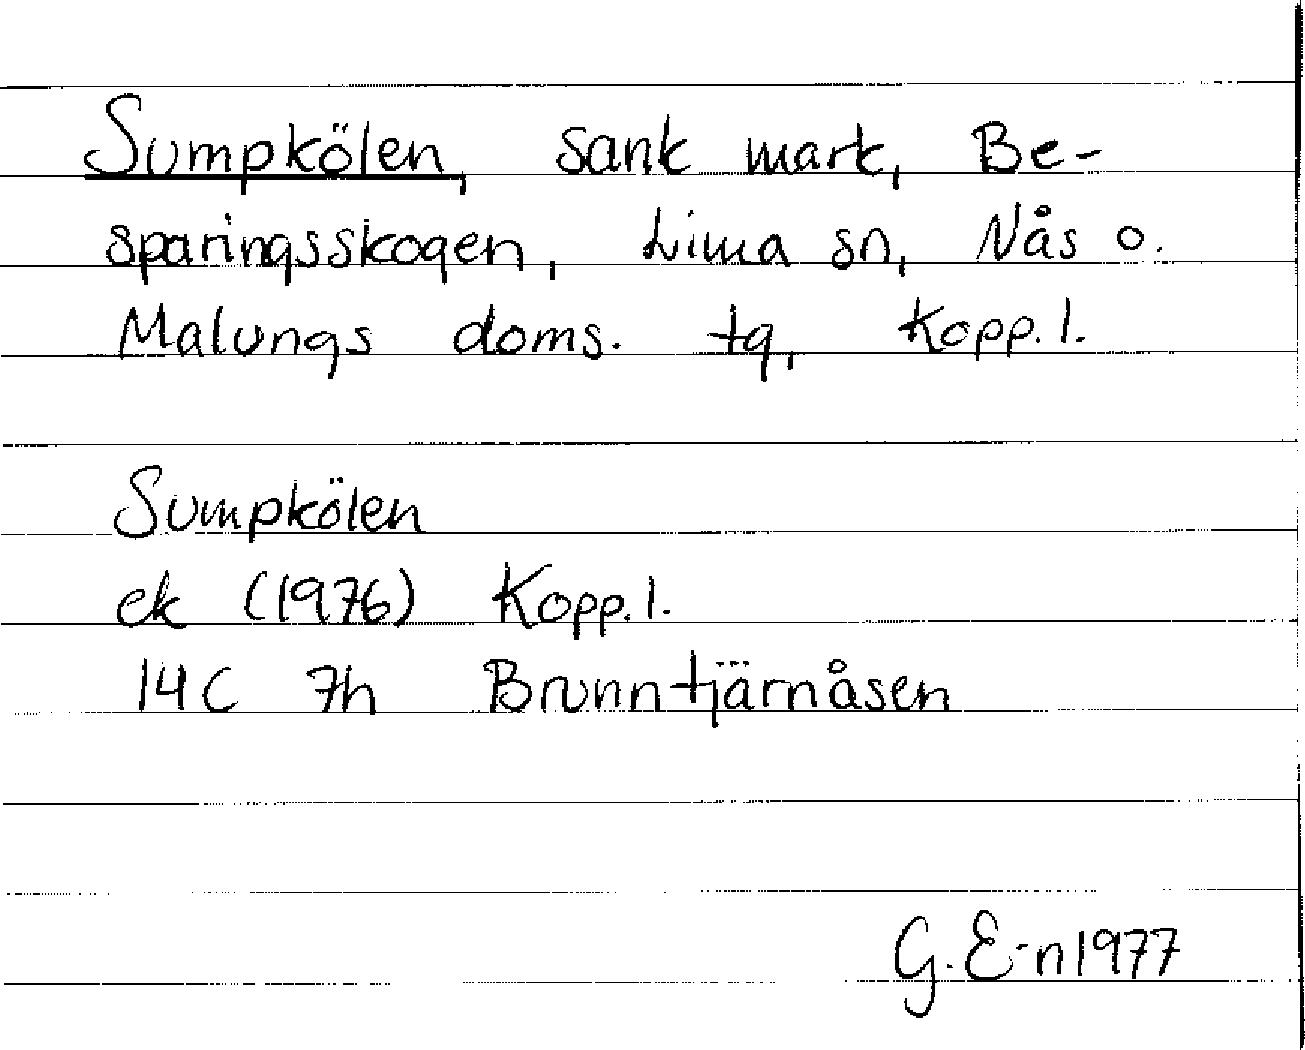 Sumpkölen, sank mark, Be-
sparingsskogen, Lima sn, Nås o.
Malungs doms. tg, Kopp. l.
Sumpkölen
ek (1976) Kopp. l.
14C 7h Brunntjärnåsen
G. E-n 1977